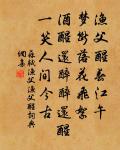 漁父醒春江午
夢斷落花飛絮
酒醒還醉醉還醒
一笑人間今古
蘇軾漁父漁父醒詞典
網集